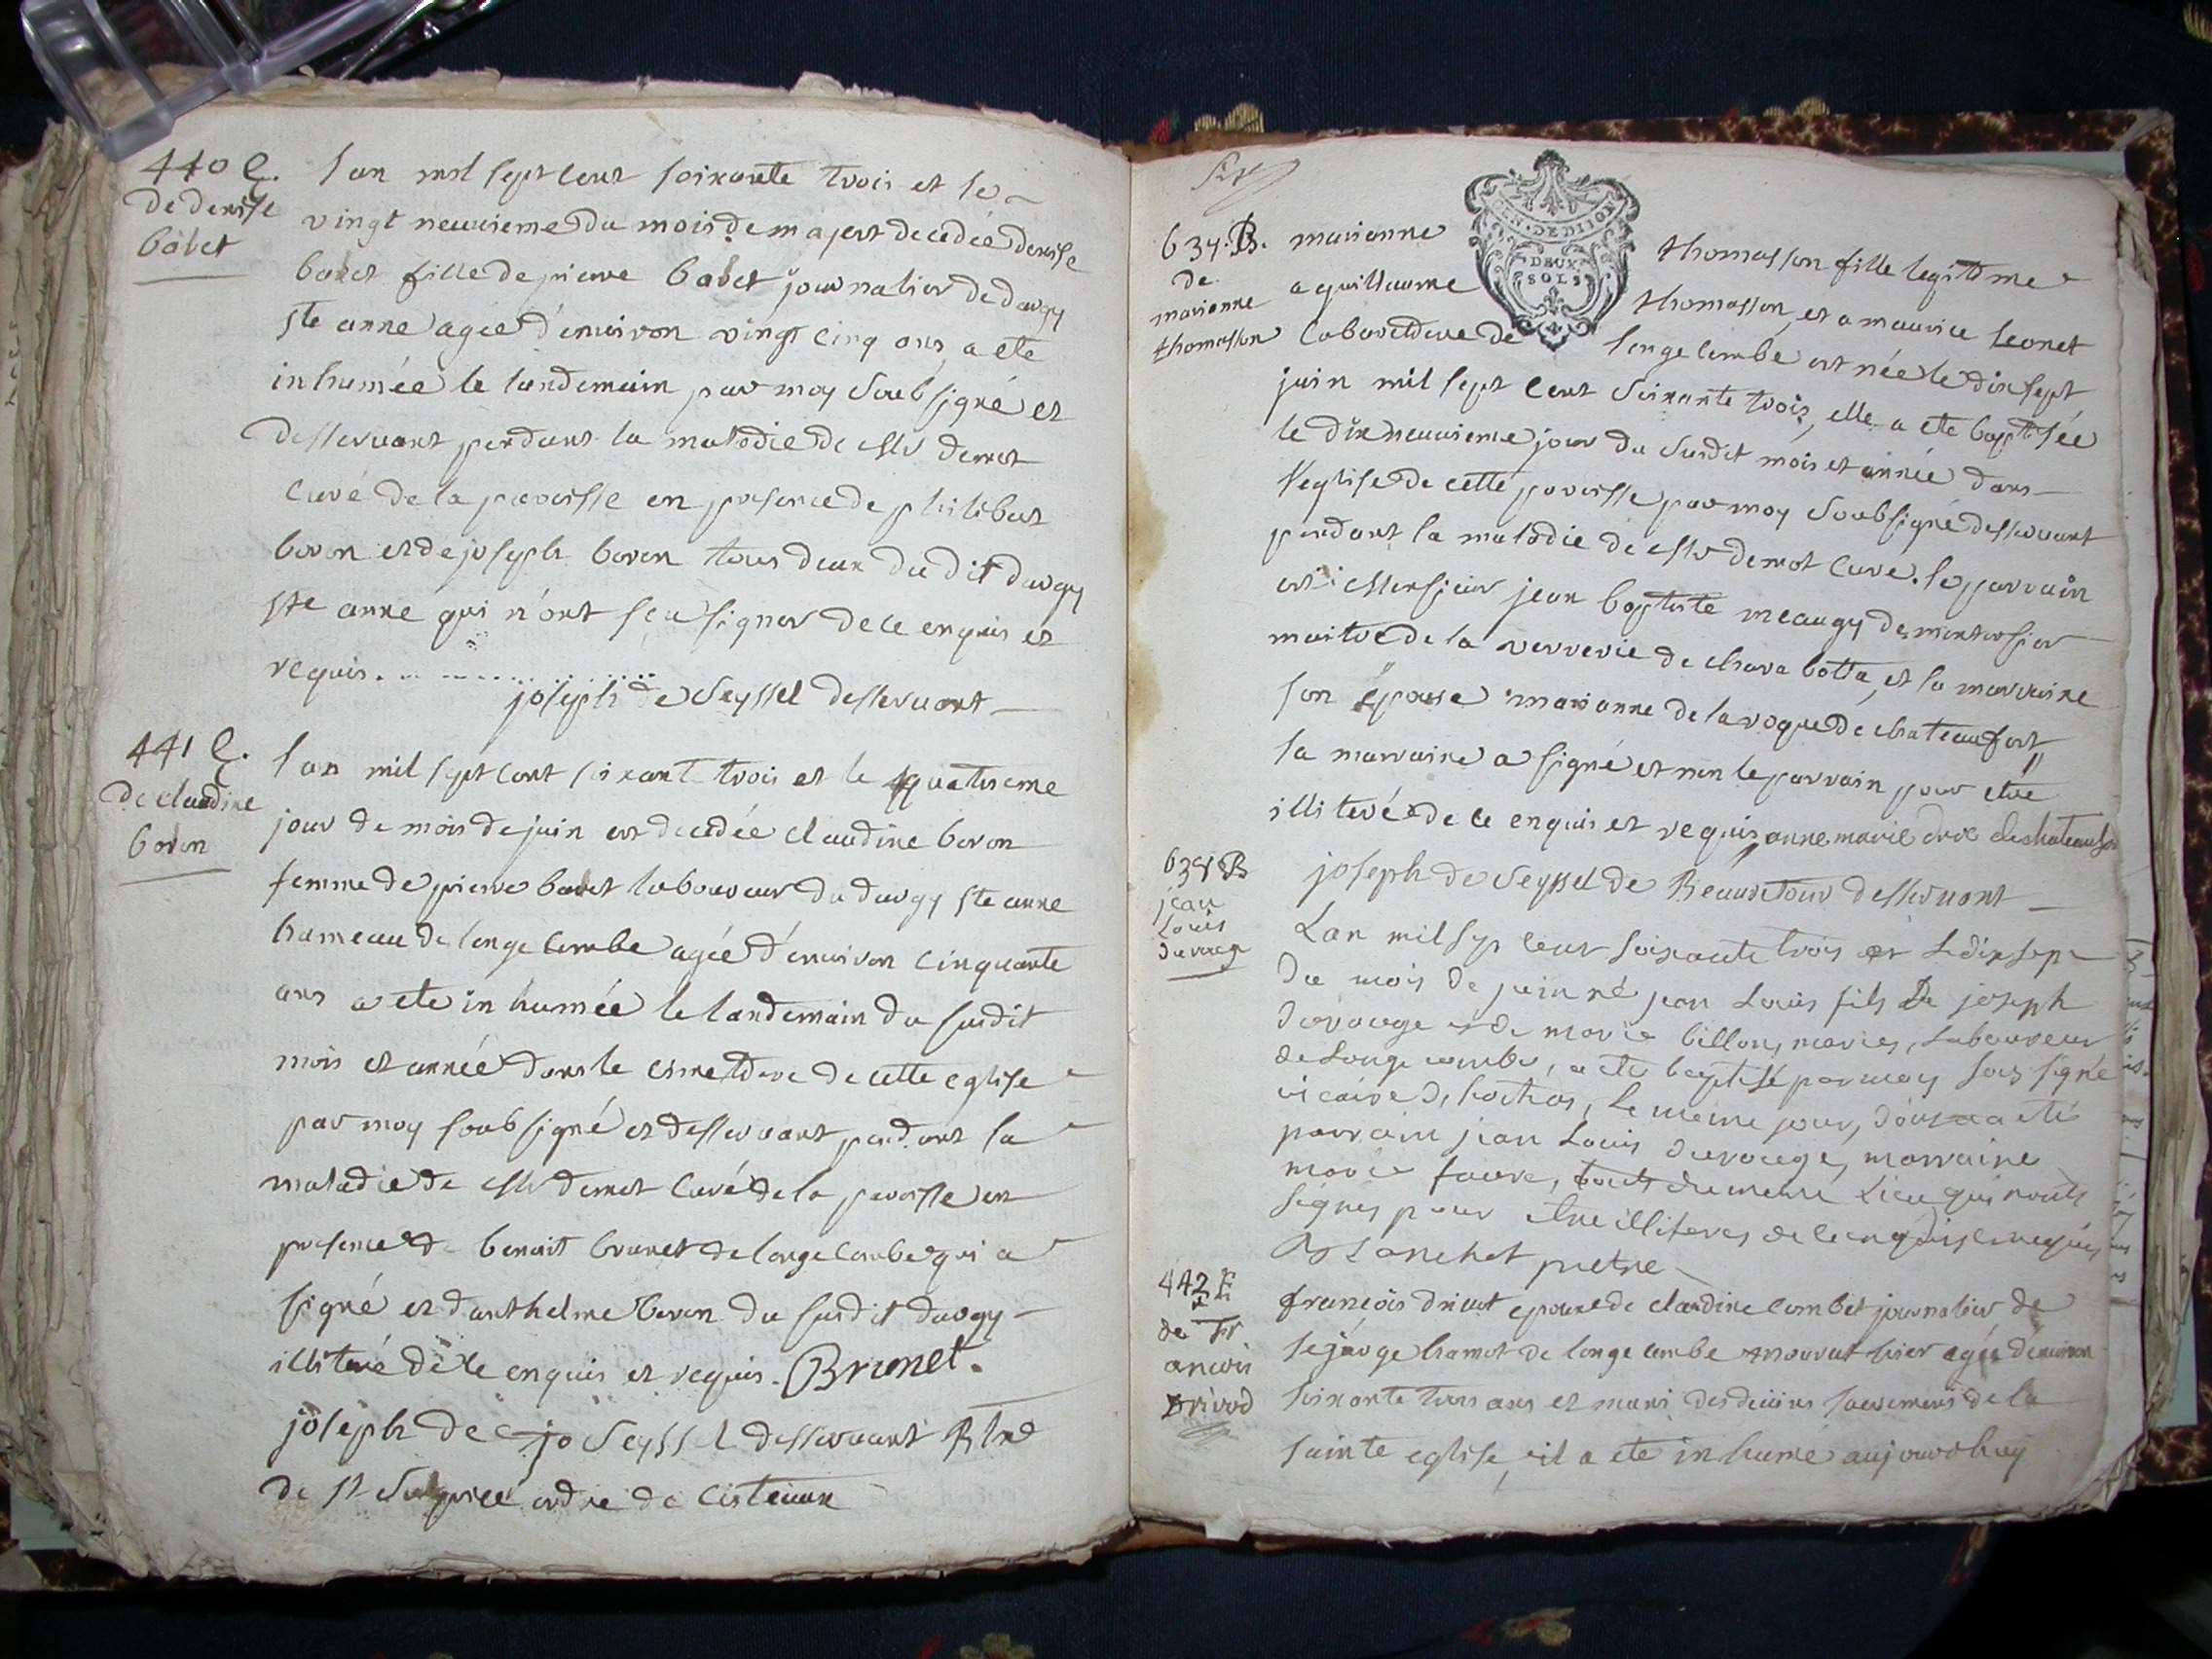 440 E.
de denise
babet
l'an mil sept cent soixante trois et le
vingt neuvieme du mois de may est decedée denise
babet fille de pierre babet journalier de dargy
ste anne agée d'environ vingt cinq ans, a ete
inhumée le landemain par moy soubsigné et
desservant pendant la maladie de demot
curé de la paroisse en presence de philibert
boron et de joseph boron tous deux du dit dargy
ste anne qui n'ont sçu signer de ce enquis et
requis.
joseph de Seyssel desservant
441 E.
de claudine
boron
l'an mil sept cent soixant trois et le quatrieme
jour de mois de juin est decedée claudine boron
femme de pierre babet laboureur du dargy ste anne
hameau de longecombe agée d'environ cinquante
ans a ete inhumée le landemain du susdit
mois et année dans le cimetiere de cette eglise
par moy soubsigné et desservant pendant la
maladie de demot curé de la paroisse en
presence de benoit brunet de longecombe qui a
signé et d'anthelme boron du susdit dargy
illiteré de ce enquis et requis. Brunet.
joseph de Seyssel desservant
de st Sulpice ordre de Cisteaux
GEN. DE DIJON
DEUX
SOLS
634. B.
de
marianne
thomasson
marianne thomasson fille legitime
a guillaume thomasson, et a maurice leonet
laboureur de longecombe est née le dix sept
juin mil sept cent soixante trois, elle a ete baptisée
le dix neuvieme jour du susdit mois et année dans
l'eglise de cette paroisse par moy soubsigné desservant
pendant la maladie de demot curé. le parrain
est Monsieur jean baptiste meaugy de
maitre de la verrerie de chara botta, et la marraine
son épouse marianne de la roque de chateaufort
la marraine a signé et non le parrain pour etre
illiteré de ce enquis et requis, anne marie
joseph de Seyssel de Beauretour desservant
635 B
jean
Louis
Lan mil sept cent soixante trois et le dix sept
du mois de juin né jean Louis fils de joseph
et de marie billon, maries, laboureur
de Longecombe, a ete baptisé par moy sous signé
vicaire le meme jour, dont a eté
parrain jean Louis marraine
marie faure, touts du meme Lieu qui n'onts
signes pour etre illiteres de ce enquis et requis
Blanchet pretre
442 E
de Fr
ancois
Drivod
françois drivot epoux de claudine combet journalier de
hamot de longecombe mourut hier agée d'environ
soixante trois ans et muni des divins sacremens de la
sainte eglise, il a ete inhumé aujourdhuy